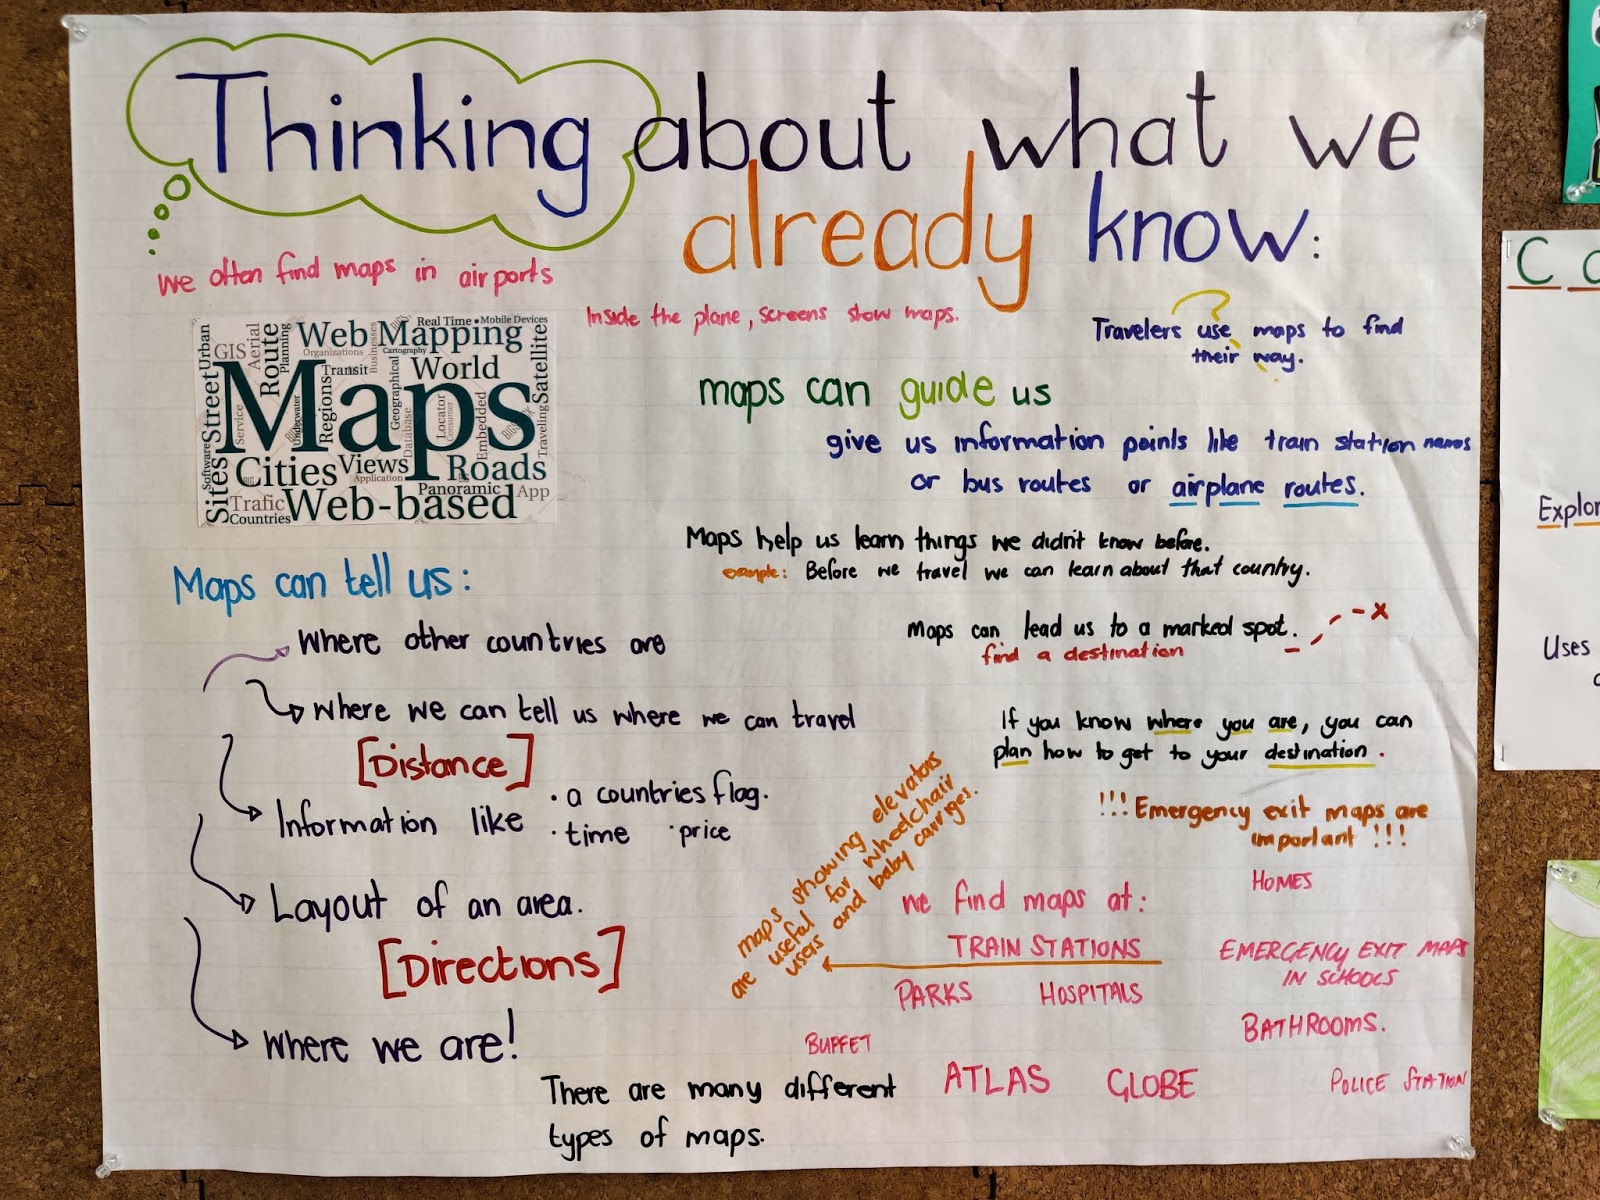 Thinking about what we
already know:
we often find maps in airports
Inside the plane, screens show maps.
Travelers use maps to find
their way.
Web Mapping
Real Time
Mobile Devices
Organizations
Cartography
Businesses
Urban
GIS
Aerial
Route
Planning
Transit
World
Satellite
Maps
Street
Service
Underwater
Regions
Geographical
Database
Locator
Consumer
Embedded
Traveling
Software
Sites
Cities
Views
Application
Roads
Panoramic
App
Trafic
Countries
Web-based
maps can guide us
give us information points like train station names
or bus routes or airplane routes.
Maps help us learn things we didn't know before.
example: Before we travel we can learn about that country.
Maps can lead us to a marked spot. x
find a destination
If you know where you are, you can
plan how to get to your destination.
!!! Emergency exit maps are
important !!!
Maps can tell us:
Where other countries are
Where we can tell us where we can travel
[Distance]
Information like
· a countries flag.
· time · price
Layout of an area.
[Directions]
Where we are!
maps showing elevators
are useful for wheelchair
users and baby carriges.
we find maps at:
HOMES
TRAIN STATIONS
EMERGENCY EXIT MAPS
IN SCHOOLS
PARKS HOSPITALS
BATHROOMS.
BUFFET
ATLAS GLOBE
POLICE STATION
There are many different
types of maps.
C
Explor
Uses